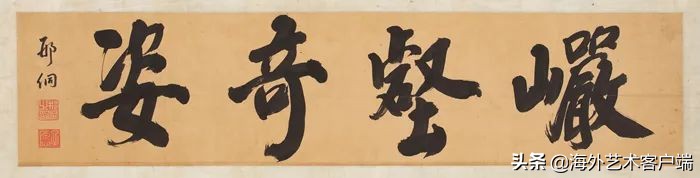 巖壑奇姿
邢侗
头条 @海外艺术客户端